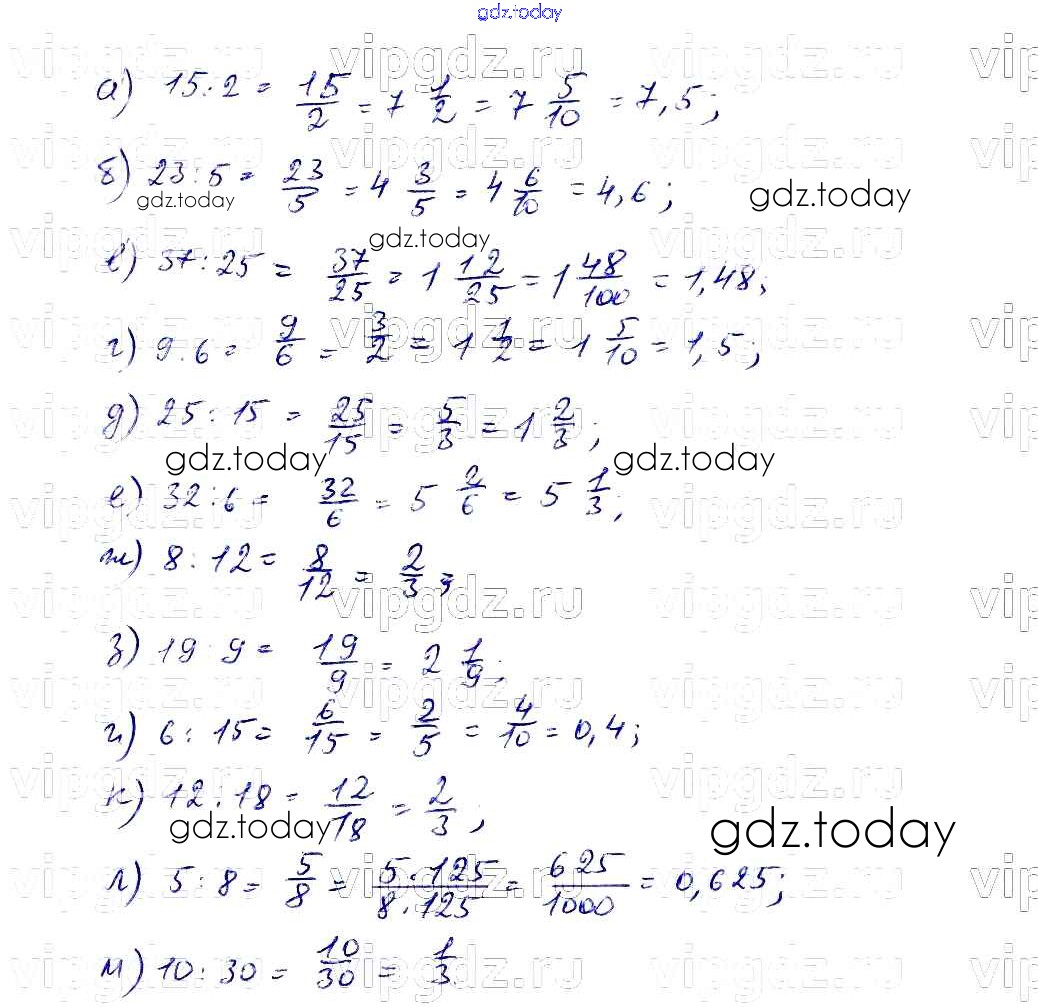 gdz.today
а) 15:2 = 15/2 = 7 1/2 = 7 5/10 = 7,5;
б) 23:5 = 23/5 = 4 3/5 = 4 6/10 = 4,6;
gdz.today gdz.today
gdz.today
в) 37:25 = 37/25 = 1 12/25 = 1 48/100 = 1,48;
г) 9:6 = 9/6 = 3/2 = 1 1/2 = 1 5/10 = 1,5;
д) 25:15 = 25/15 = 5/3 = 1 2/3;
gdz.today gdz.today
е) 32:6 = 32/6 = 5 2/6 = 5 1/3;
ж) 8:12 = 8/12 = 2/3;
з) 19:9 = 19/9 = 2 1/9;
и) 6:15 = 6/15 = 2/5 = 4/10 = 0,4;
к) 12:18 = 12/18 = 2/3;
gdz.today gdz.today
л) 5:8 = 5/8 = 5·125/8·125 = 625/1000 = 0,625;
м) 10:30 = 10/30 = 1/3.
vipgdz.ru